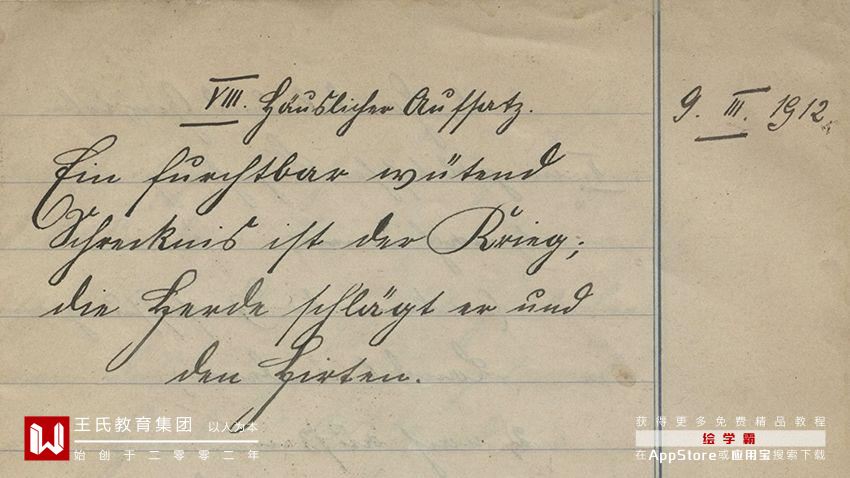 VIII. Häuslicher Aufsatz.
9. III. 1912.
Ein furchtbar wütend
Schrecknis ist der Krieg;
die Herde schlägt er und
den Hirten.
王氏教育集团 以人为本
始创于二零零二年
获得更多免费精品教程
绘学霸
在AppStore或应用宝搜索下载